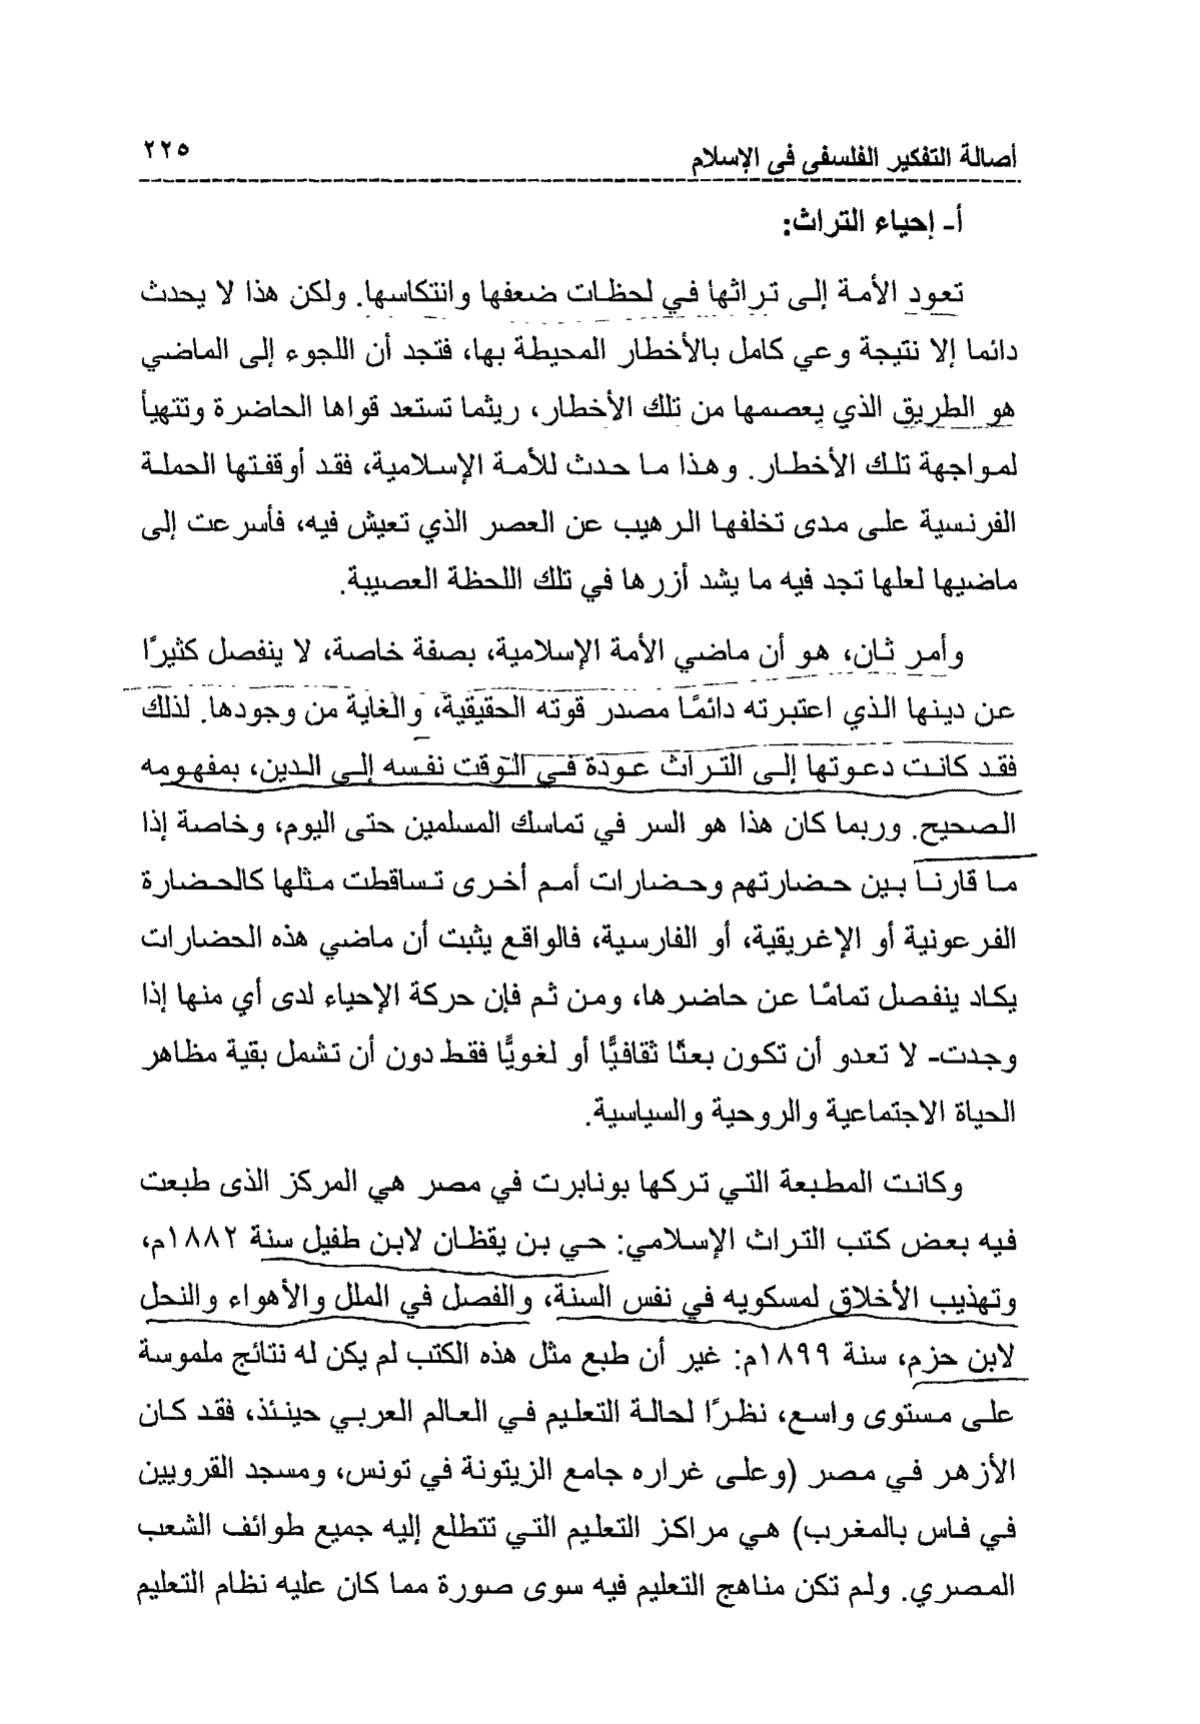 أصالة التفكير الفلسفى فى الإسلام ٢٢٥
أ- إحياء التراث:
تعود الأمة إلى تراثها في لحظات ضعفها وانتكاسها. ولكن هذا لا يحدث
دائما إلا نتيجة وعي كامل بالأخطار المحيطة بها، فتجد أن اللجوء إلى الماضي
هو الطريق الذي يعصمها من تلك الأخطار، ريثما تستعد قواها الحاضرة وتتهيأ
لمواجهة تلك الأخطار. وهذا ما حدث للأمة الإسلامية، فقد أوقفتها الحملة
الفرنسية على مدى تخلفها الرهيب عن العصر الذي تعيش فيه، فأسرعت إلى
ماضيها لعلها تجد فيه ما يشد أزرها في تلك اللحظة العصيبة.
وأمر ثان، هو أن ماضي الأمة الإسلامية، بصفة خاصة، لا ينفصل كثيرًا
عن دينها الذي اعتبرته دائمًا مصدر قوته الحقيقية، والغاية من وجودها. لذلك
فقد كانت دعوتها إلى التراث عودة في الوقت نفسه إلى الدين، بمفهومه
الصحيح. وربما كان هذا هو السر في تماسك المسلمين حتى اليوم، وخاصة إذا
ما قارنا بين حضارتهم وحضارات أمم أخرى تساقطت مثلها كالحضارة
الفرعونية أو الإغريقية، أو الفارسية، فالواقع يثبت أن ماضي هذه الحضارات
يكاد ينفصل تمامًا عن حاضرها، ومن ثم فإن حركة الإحياء لدى أي منها إذا
وجدت- لا تعدو أن تكون بعثًا ثقافيًّا أو لغويًّا فقط دون أن تشمل بقية مظاهر
الحياة الاجتماعية والروحية والسياسية.
وكانت المطبعة التي تركها بونابرت في مصر هي المركز الذى طبعت
فيه بعض كتب التراث الإسلامي: حي بن يقظان لابن طفيل سنة ١٨٨٢م،
وتهذيب الأخلاق لمسكويه في نفس السنة، والفصل في الملل والأهواء والنحل
لابن حزم، سنة ١٨٩٩م: غير أن طبع مثل هذه الكتب لم يكن له نتائج ملموسة
على مستوى واسع، نظرًا لحالة التعليم في العالم العربي حينئذ، فقد كان
الأزهر في مصر (وعلى غراره جامع الزيتونة في تونس، ومسجد القرويين
في فاس بالمغرب) هي مراكز التعليم التي تتطلع إليه جميع طوائف الشعب
المصري. ولم تكن مناهج التعليم فيه سوى صورة مما كان عليه نظام التعليم